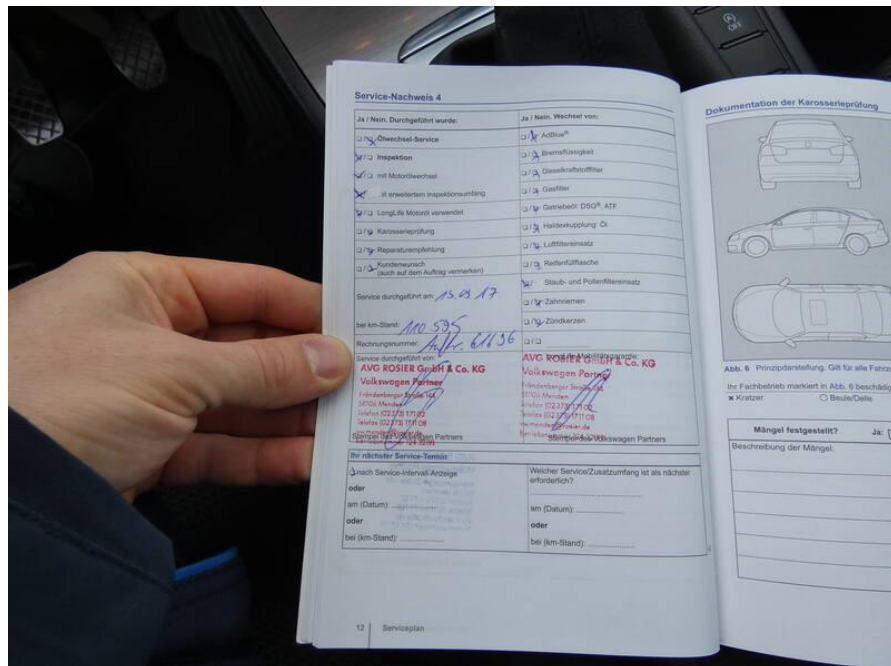 OFF
Service-Nachweis 4
Ja / Nein. Durchgeführt wurde:
Ölwechsel-Service
Inspektion
mit Motorölwechsel
erweitertem Inspektionsumfang
LongLife Motoröl verwendet
Karosserieprüfung
Reparaturempfehlung
Kundenwunsch
(auch auf dem Auftrag vermerken)
Service durchgeführt am: 13.09.17
bei km-Stand: 110 595
Rechnungsnummer: Auftr. 61696
Service durchgeführt von:
AVG ROSIER GmbH & Co. KG
Volkswagen Partner
Fröndenberger Straße 144
58706 Menden
Telefon (02373) 171 02
Telefax (02373) 1711 08
Stempel des Volkswagen Partners
Ja / Nein. Wechsel von:
AdBlue®
Bremsflüssigkeit
Dieselkraftstofffilter
Gasfilter
Getriebeöl: DSG®, ATF
Haldexkupplung: Öl
Luftfiltereinsatz
Reifenfüllflasche
Staub- und Pollenfiltereinsatz
Zahnriemen
Zündkerzen
AVG ROSIER GmbH & Co. KG
Volkswagen Partner
Fröndenberger Straße 144
58706 Menden
Telefon (02373) 171 02
Telefax (02373) 1711 08
Stempel des Volkswagen Partners
Ihr nächster Service-Termin:
nach Service-Intervall-Anzeige
oder
am (Datum):
oder
bei (km-Stand):
Welcher Service/Zusatzumfang ist als nächster
erforderlich?
am (Datum):
oder
bei (km-Stand):
12 Serviceplan
Dokumentation der Karosserieprüfung
Abb. 6 Prinzipdarstellung. Gilt für alle
Ihr Fachbetrieb markiert in Abb. 6
x Kratzer Beule/Delle
Mängel festgestellt? Ja:
Beschreibung der Mängel: